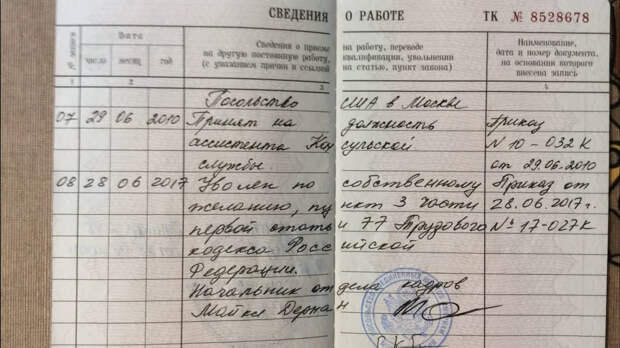 СВЕДЕНИЯ О РАБОТЕ ТК № 8528678
№ записи
Дата
число месяц год
Сведения о приеме на работу, переводе
на другую постоянную работу, квалификации, увольнении
(с указанием причин и ссылкой на статью, пункт закона)
Наименование,
дата и номер документа,
на основании которого
внесена запись
1 2 3 4
Посольство США в Москве
07 29 06 2010 Принят на должность Приказ
ассистента Консульской N 10-032К
службы. от 29.06.2010
08 28 06 2017 Уволен по собственному Приказ от
желанию, пункт 3 части 28.06.2017г.
первой статьи 77 Трудового №17-027К
кодекса Российской
Федерации.
Начальник отдела кадров
Майкл